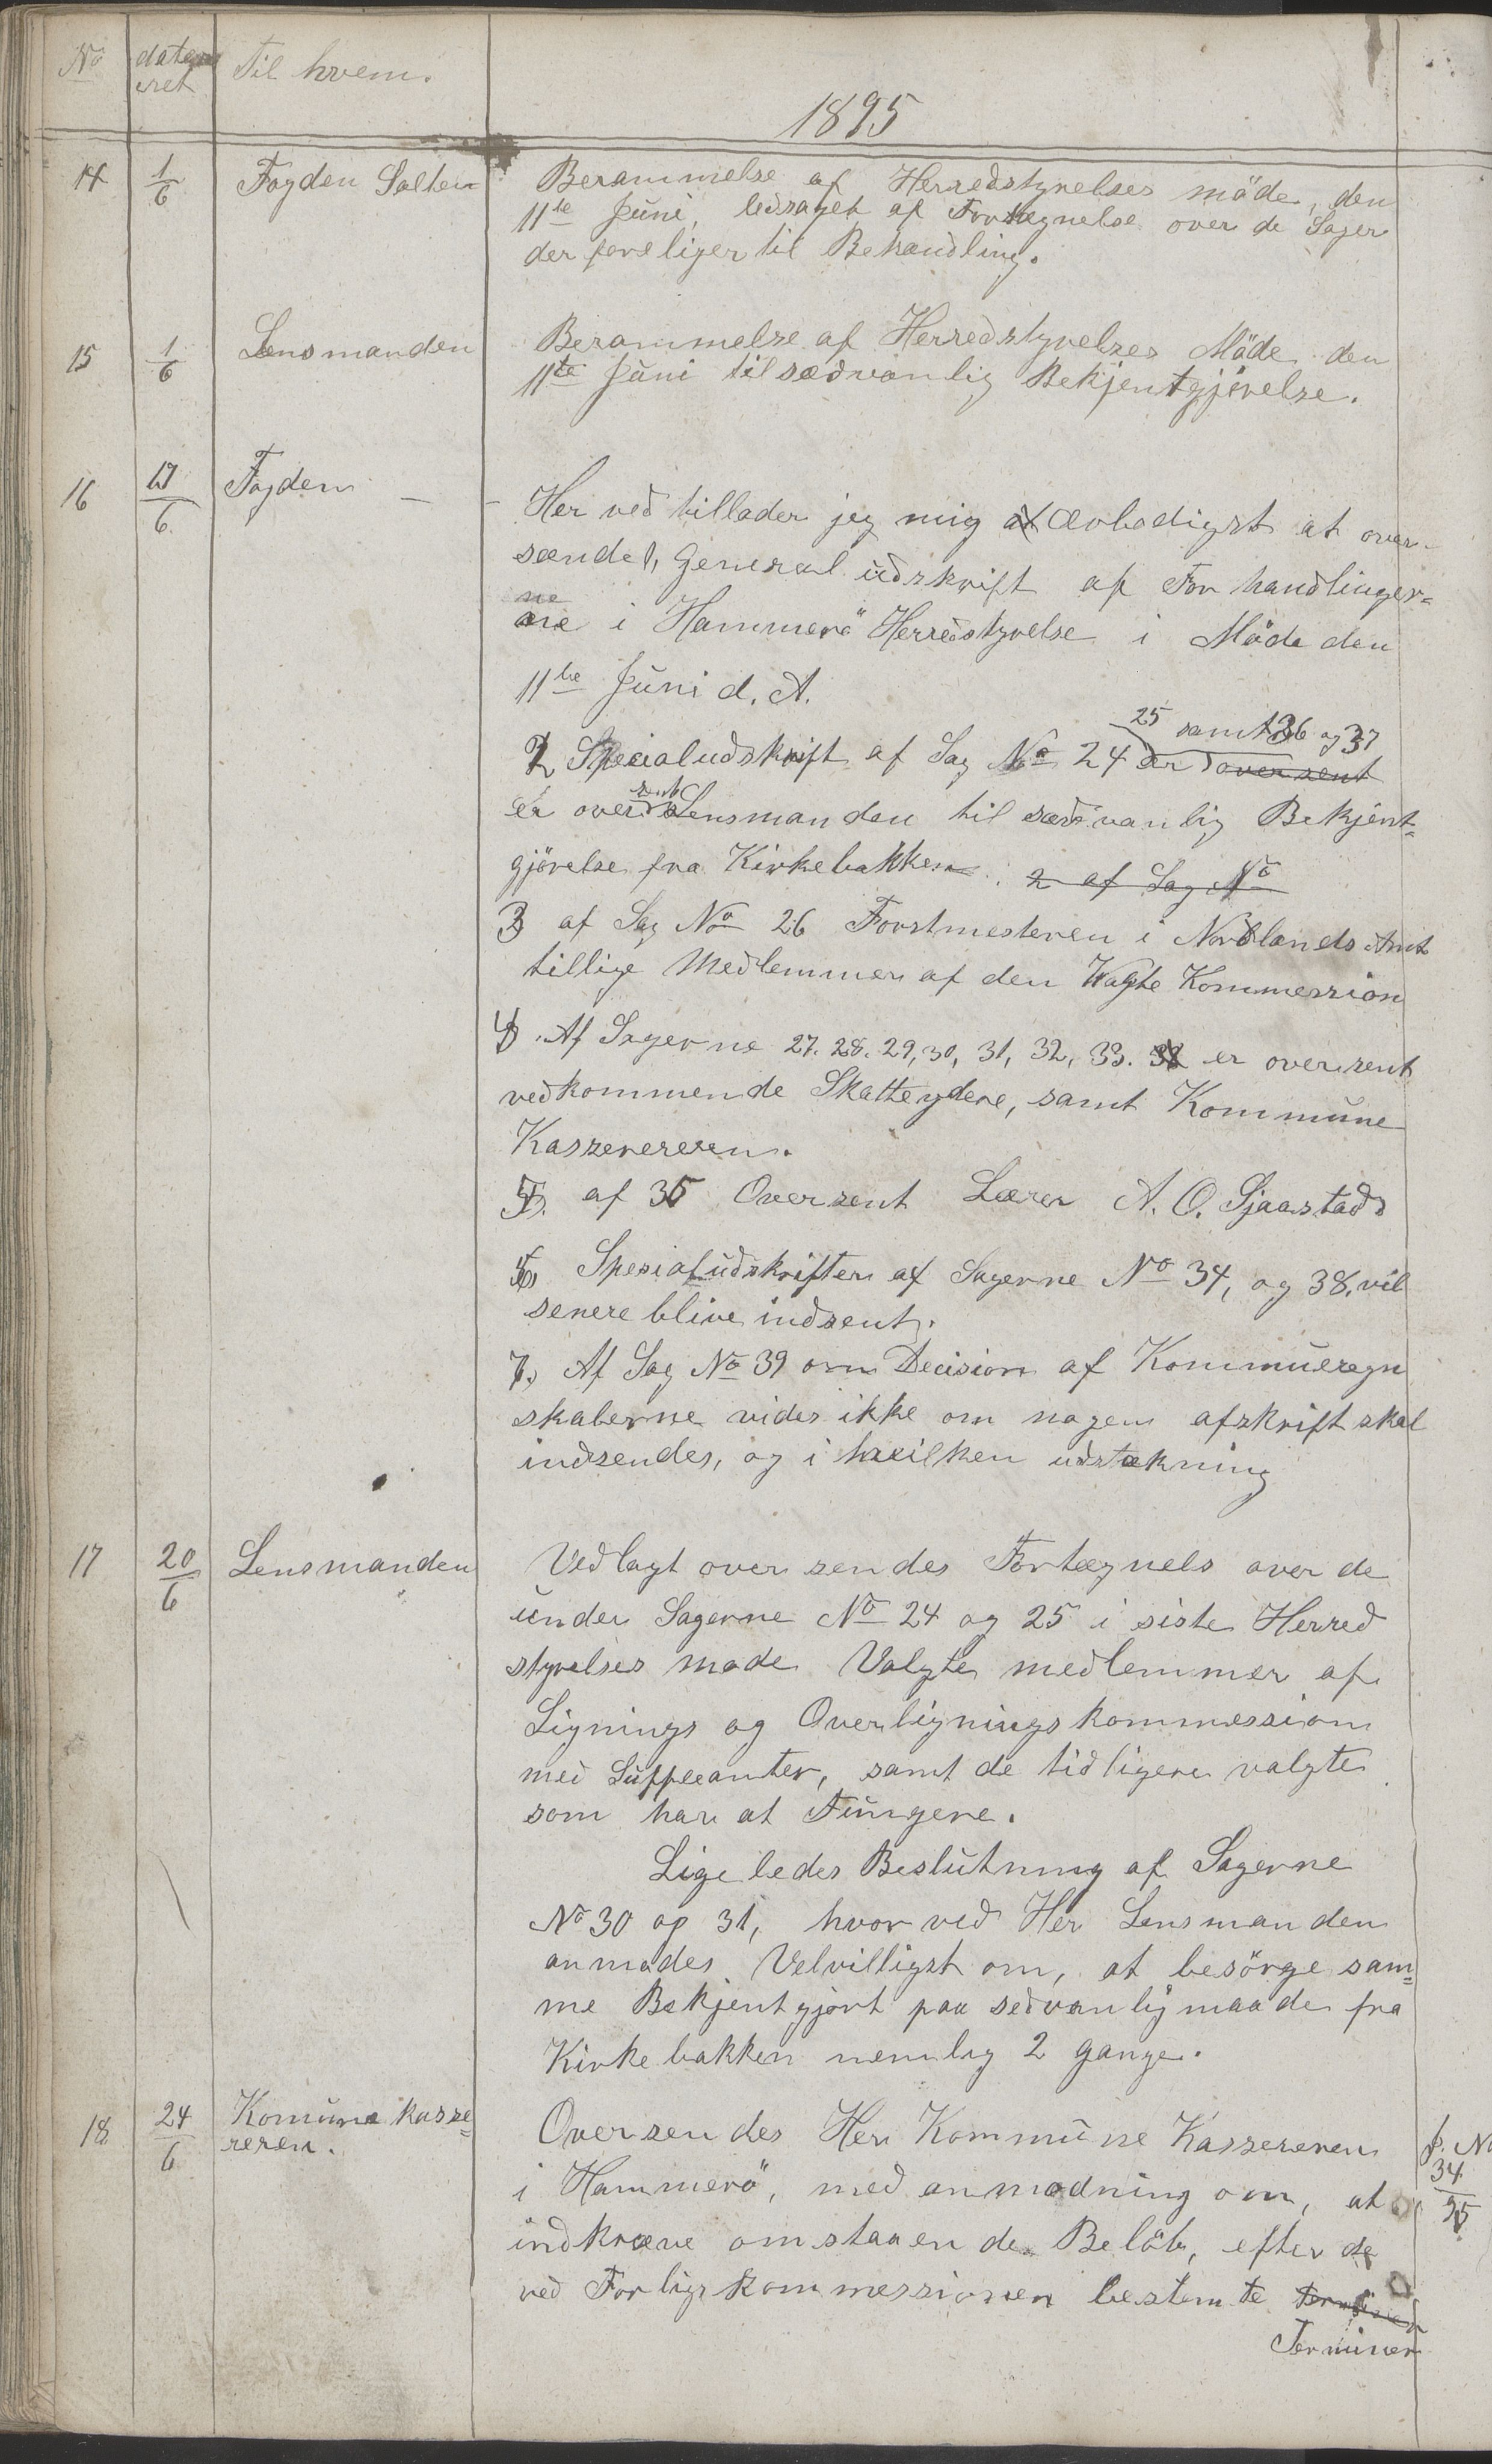 No dater eret Til hvem.
1895
14 1/6 Fogden Salten Berammelse af Herredstyrelses möde, den
11te Juni, ledsaget af Fortegnelse over de Sager
der foreliger til Behandling.
15 1/6 Lensmanden Berammelse af Herredstyrelses Möde den
11te Juni til sædvanlig Bekjentgjörelse.
16 17/6 Fogden — - Her ved tillader jeg mig at ærbødigst at over-
sænde 1, General udskrift af For handlinger=
ne i Hammerö Herredstyrelse i Möde den
11te Juni d. A.
25 samt 36 og 37
2, Specialudskrift af Sag No 24 er oversent
er oversent Lensmanden til sædvanlig Bekjent=
gjörelse fra Kirkebakken. 2 af Sag No
3 af Sag No 26 Forstmesteren i Nordlands Amt
tillige Medlemmer af den Valgte Kommession
4. Af Sagerne 27. 28. 29, 30, 31, 32, 33. er oversent
vedkommende Skatteydere, samt Kommune
Kassereren.
5). af 35 Oversent Lærer A. O. Sjaastad
6, Spesialudskrifter af Sagerne No 34, og 38, vil
senere blive indsent.
7, Af Sag No 39 om Decision af Kommueregn
skaberne vides ikke om nogen afskrift skal
indsendes, og i hvilken udstrekning
17 20/6 Lensmanden Vedlagt over sendes Fortegnels over de
under Sagerne No 24 og 25 i siste Herred
styrelses mode Valgte medlemmer af
Lignings og Overligningskommession
med Suppleanter, samt de tidligere valgte
som har at Fungere.
Lige ledes Beslutning af Sagerne
No 30 og 31, hvor ved Her Lensmanden
anmodes Velvilligst om, at besörge sam=
me Bekjentgjort paa sedvanlig maade fra
Kirke bakken nemlig 2 gange.
18 24/6 Komune kasse=
reren. Oversendes Her Kommune Kassereren
J. No
34/95
i Hammerö, med anmodning om, at
indkræve omstaaende Belöb, efter de
ved Forligskommessionen bestemte
Terminer